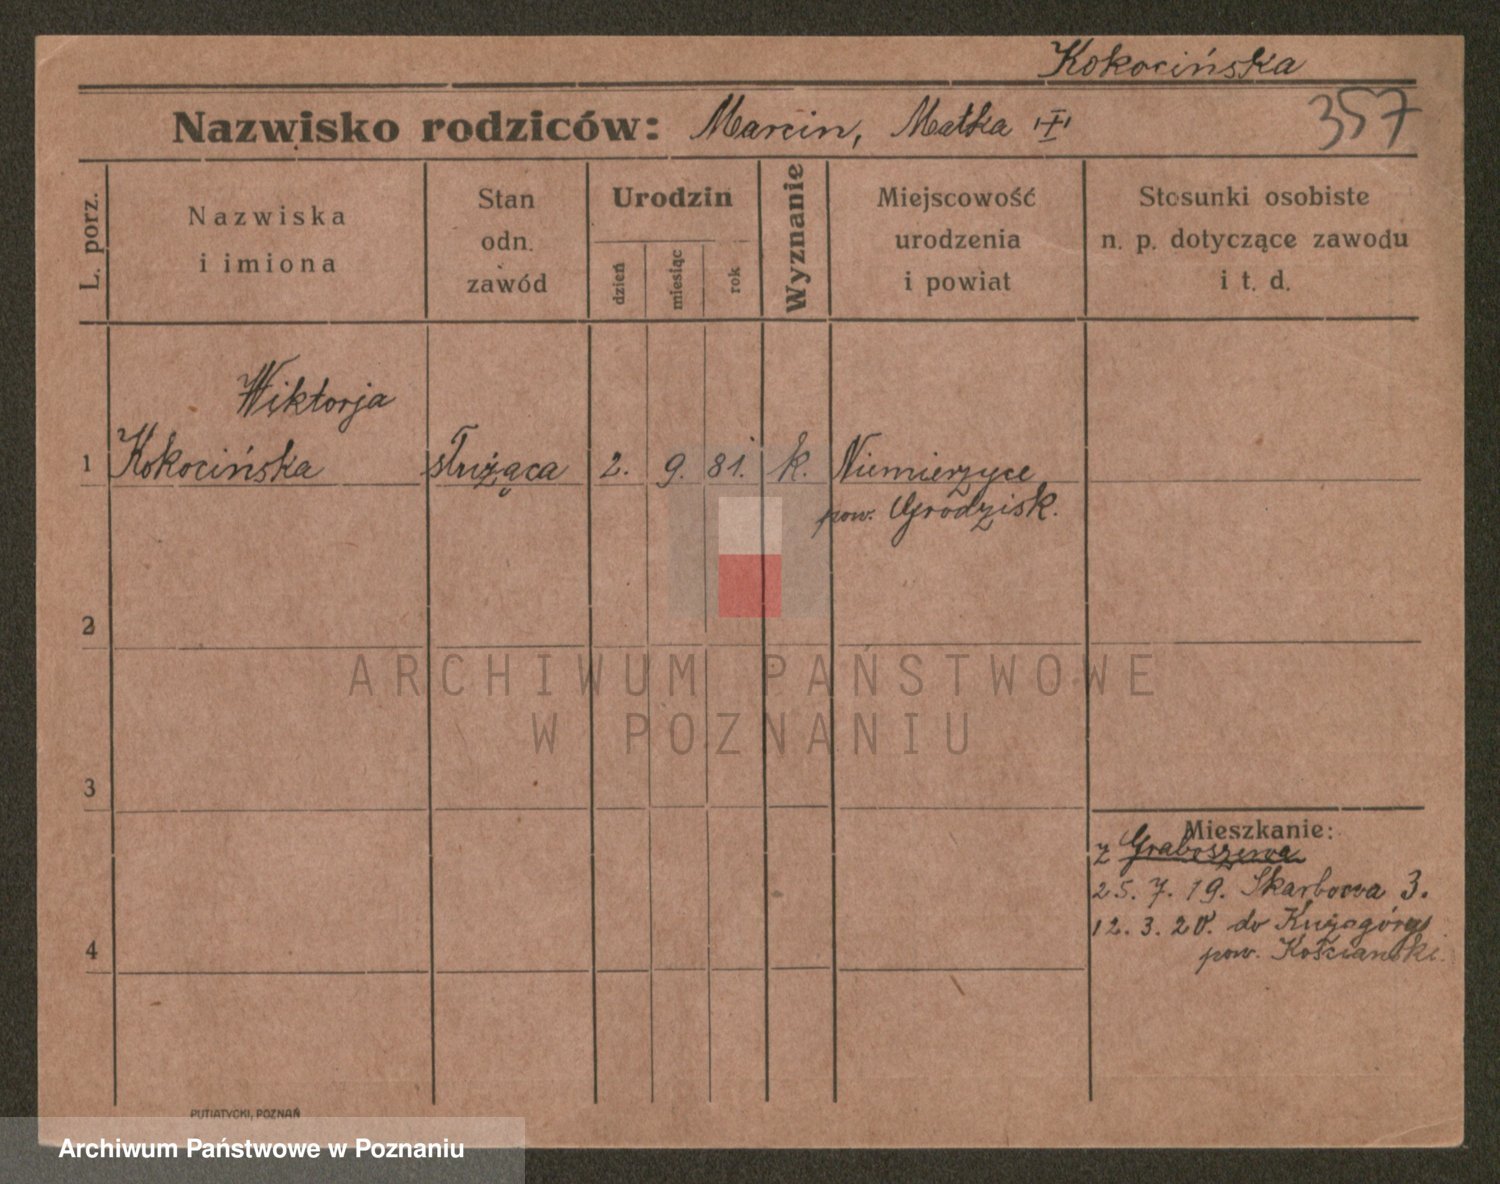 Kokocińska
357
Nazwisko rodziców: Marcin, Matka
L. porz.
Nazwiska
i imiona
Stan
odn.
zawód
Urodzin
dzień
miesiąc
rok
Wyznanie
Miejscowość
urodzenia
i powiat
Stosunki osobiste
n. p. dotyczące zawodu
i t. d.
Wiktorja
1 Kokocińska służąca 2. 9. 81. k. Niemierzyce
pow. Grodzisk.
2
ARCHIWUM PAŃSTWOWE
W POZNANIU
3
Mieszkanie:
z Graboszewa
25. 7. 19. Skarbowa 3.
12. 3. 20. do
4
pow. Kościański.
PUTIATYCKI, POZNAŃ
Archiwum Państwowe w Poznaniu